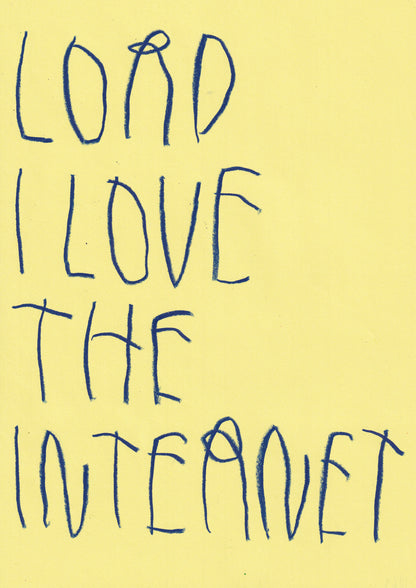 LORD
I LOVE
THE
INTERNET